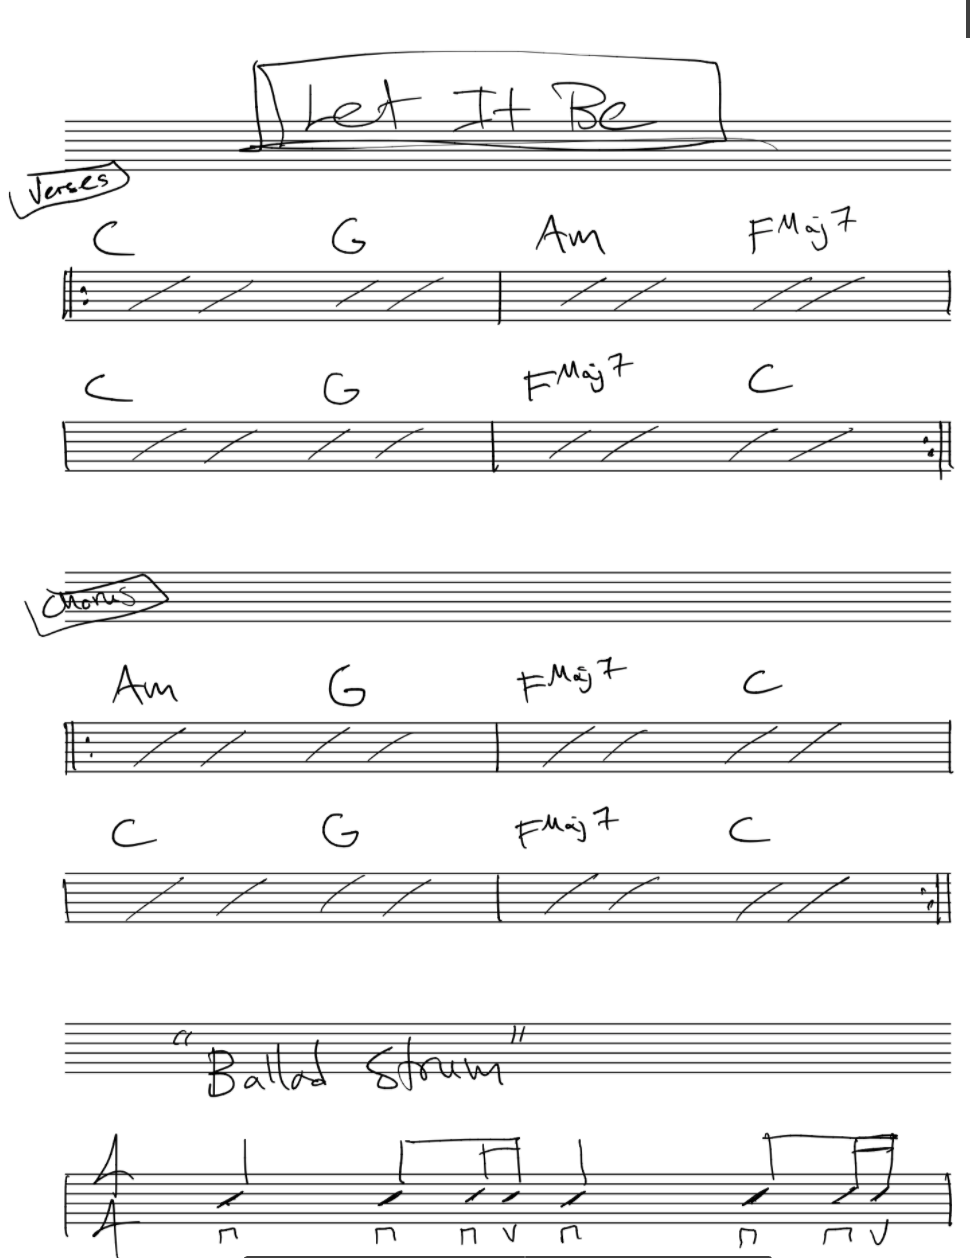 Let It Be
Verses
C G Am FMaj7
C G FMaj7 C
Chorus
Am G FMaj7 C
C G FMaj7 C
"Ballad Strum"
4
4